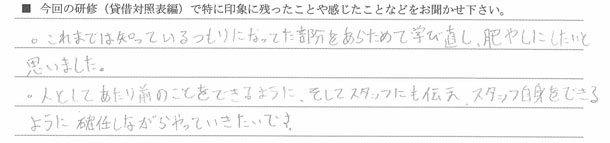 ■ 今回の研修（貸借対照表編）で特に印象に残ったことや感じたことなどをお聞かせ下さい。
。これまでは知っているつもりになってた部分をあらためて学び直し、肥やしにしたいと
思いました。
。人としてあたり前のことをできるように、そしてスタッフにも伝え、スタッフ自身をできる
ように 確任しながらやっていきたいです。